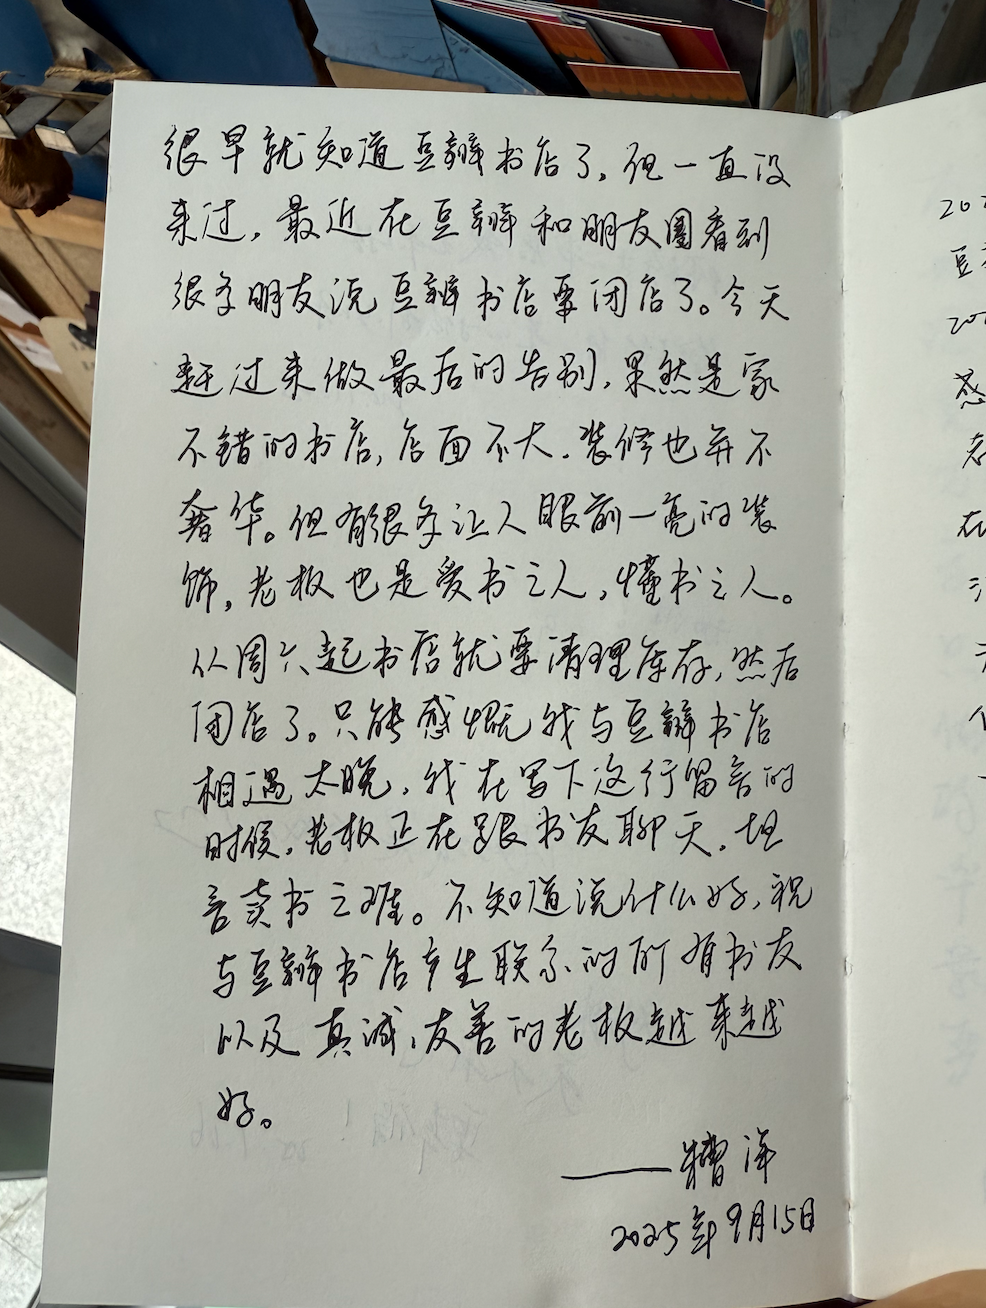 很早就知道豆瓣书店了，但一直没
来过，最近在豆瓣和朋友圈看到
很多朋友说豆瓣书店要闭店了。今天
赶过来做最后的告别，果然是家
不错的书店，店面不大．装修也并不
奢华。但有很多让人眼前一亮的装
饰，老板也是爱书之人，懂书之人。
从周六起书店就要清理库存，然后
闭店了。只能感慨我与豆瓣书店
相遇太晚，我在写下这行留言的
时候，老板正在跟书友聊天，坦
言卖书之难。不知道说什么好，祝
与豆瓣书店产生联系的所有书友
以及真诚、友善的老板越来越
好。
——糟洋
2025年9月15日
202
豆
202
感
老
在